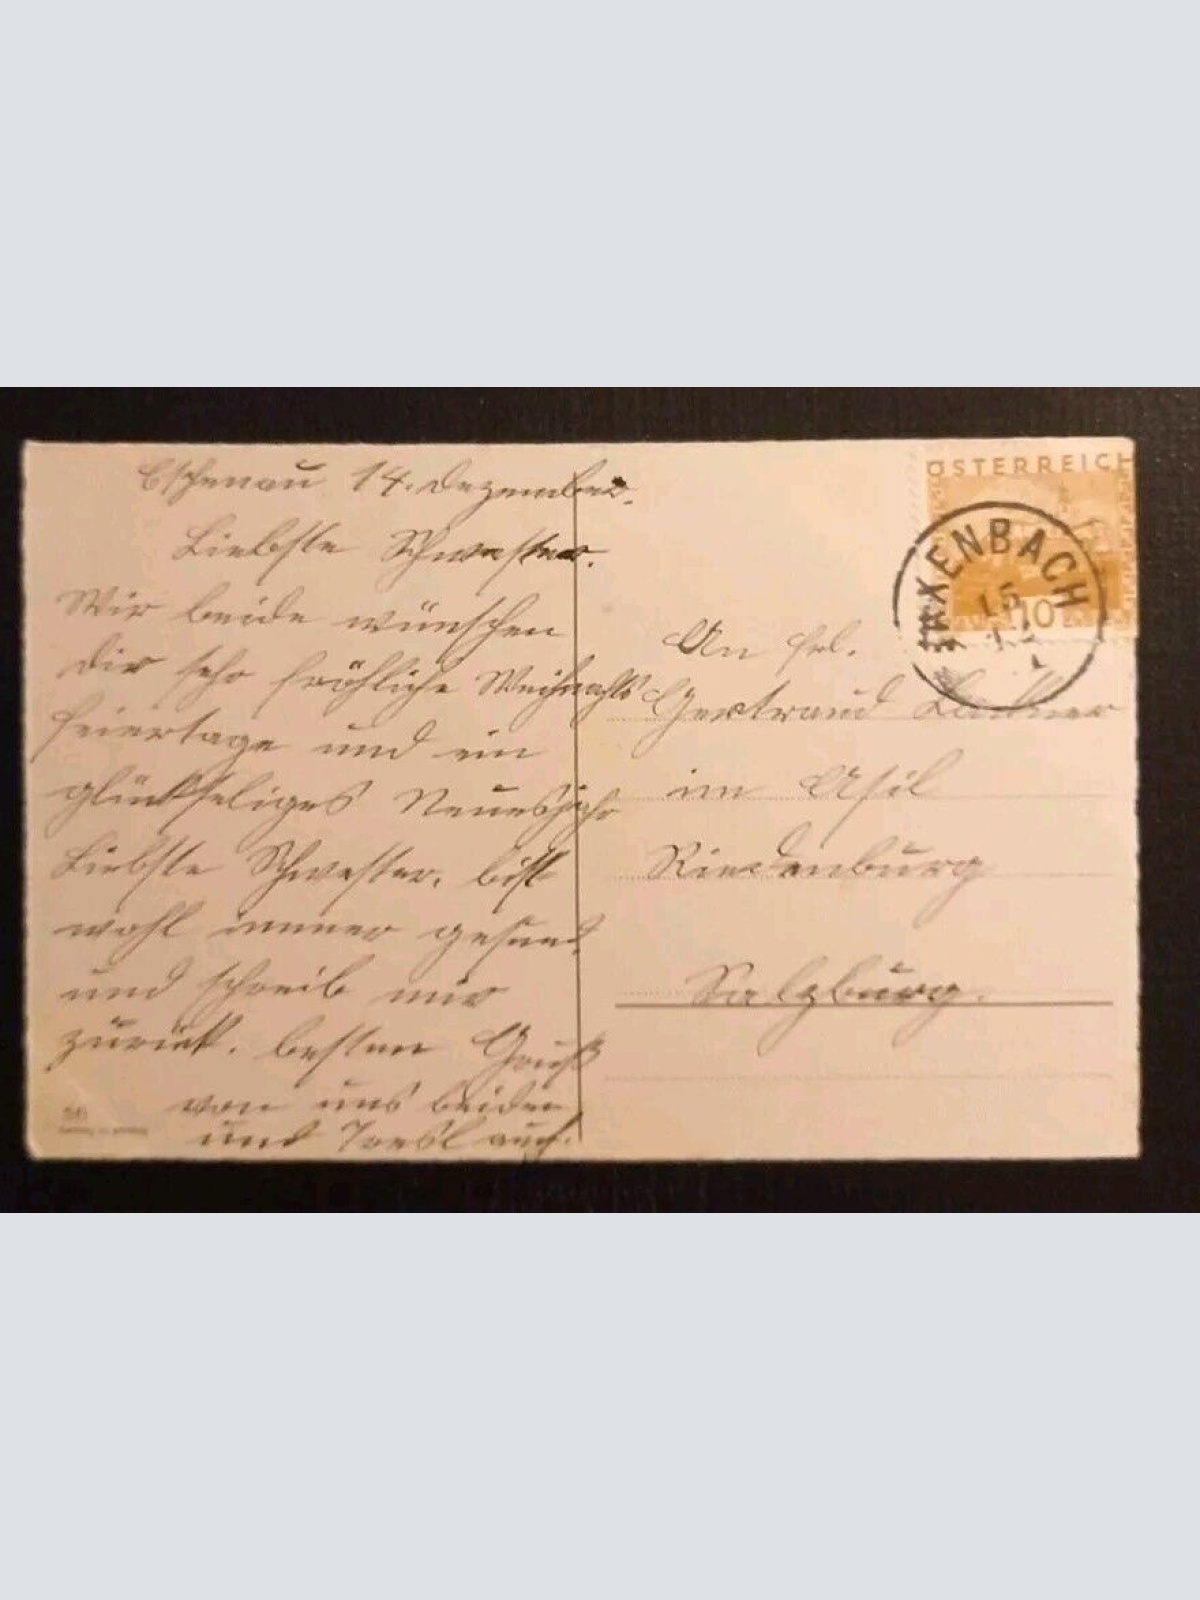 Eschenau 14. Dezember.
Liebste Schwester.
Wir beide wünschen
dir sehr fröhliche Weihnachts
feiertage und ein
glückseliges Neuesjahr
Liebste Schwester, bist
wohl immer gesund,
und schreib mir
zurück. besten Gruß
von uns beiden
und Tresl auch.
ÖSTERREICH
TAXENBACH
15
10
An Frl.
Gertraud
im Asil
Riedenburg
Salzburg.